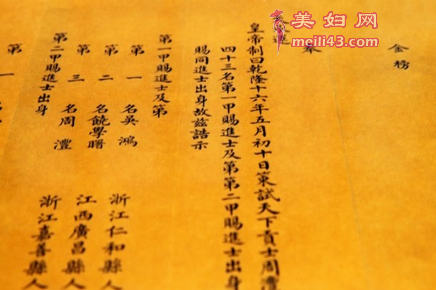 美妇网
meili43.com
金
奉
皇帝制曰乾隆十六年五月初十日策試天下貢士周澧
四十三名第一甲賜進士及第第二甲賜進士出身
賜同進士出身故茲誥示
第一甲賜進士及第
第一名吳鴻 浙江仁和縣人
第 名饒學曙 江西廣昌縣人
第三名周澧 浙江嘉善縣人
第二甲賜進士出身
第一